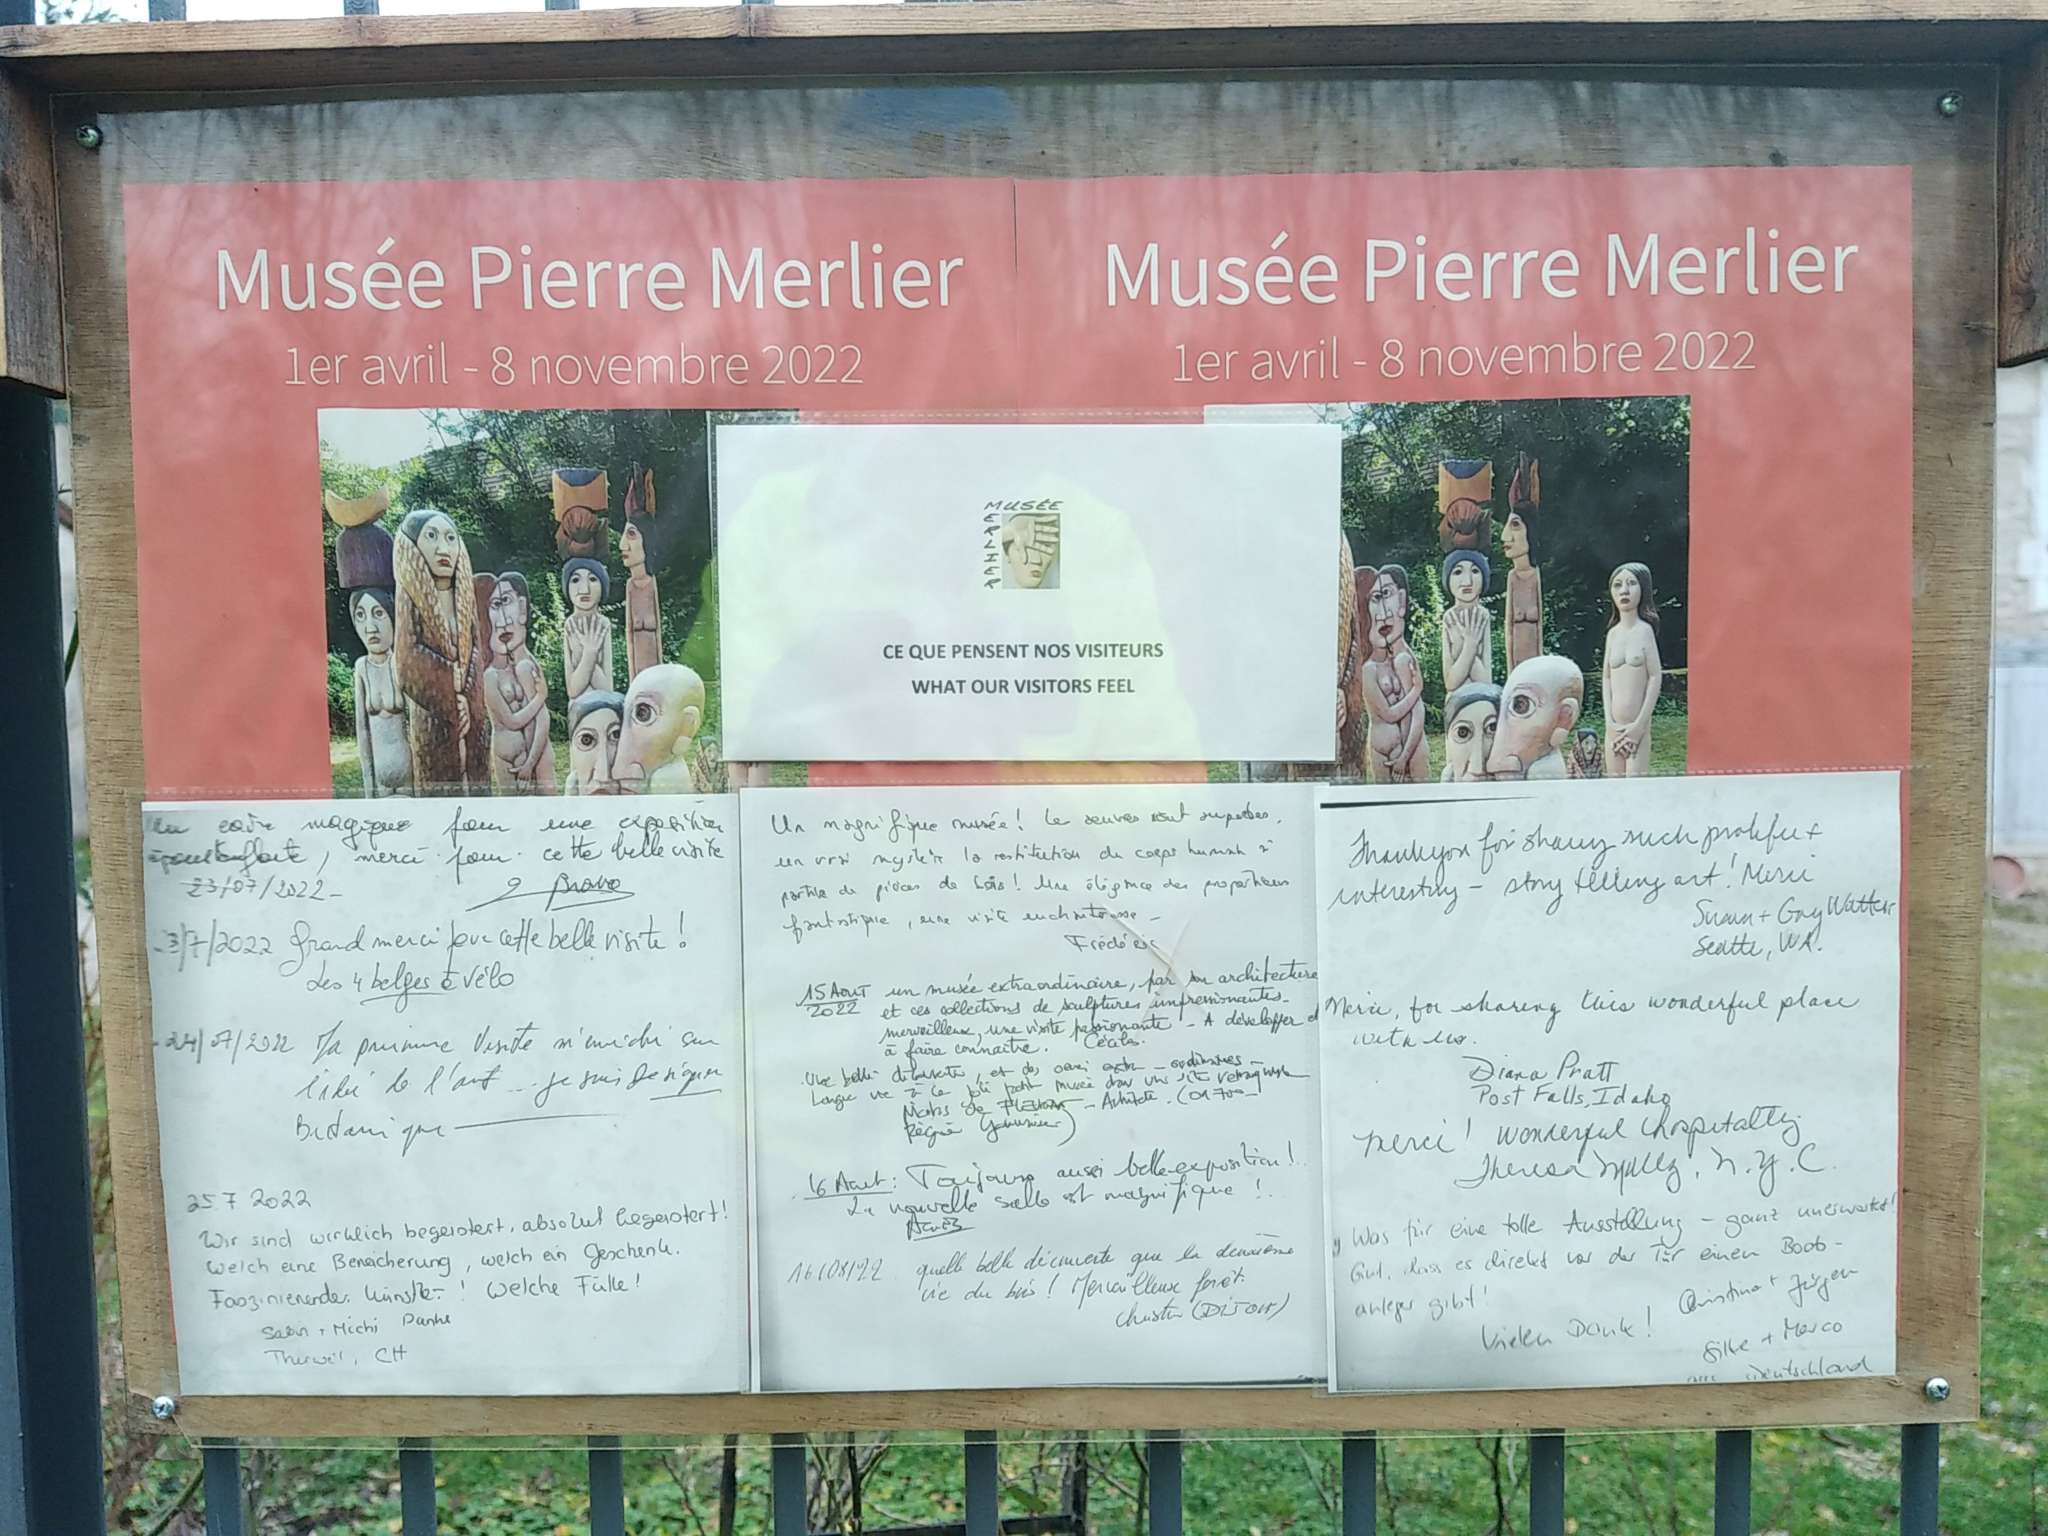 Musée Pierre Merlier
1er avril - 8 novembre 2022
Musée Pierre Merlier
1er avril - 8 novembre 2022
MUSÉE
MERLIER
CE QUE PENSENT NOS VISITEURS
WHAT OUR VISITORS FEEL
magique pour une exposition
merci pour cette belle visite
23/07/2022 - Bravo
3/7/2022 Grand merci pour cette belle visite !
Les 4 belges à vélo
24/07/2022 Ma première visite m'enrichi sur
l'idée de l'art ... je suis
Botanique
25 7 2022
Wir sind wirklich begeistert, absolut begeistert!
Welch eine Bereicherung, welch ein Geschenk.
Faszinierender Künstler! Welche Fülle!
+ Michi Danke
Therwil, CH
Un magnifique musée ! Les œuvres sont superbes,
un vrai mystère la restitution du corps humain à
partir de pièces de bois ! Une élégance des proportions
fantastique, une visite enchanteresse -
Frédéric
15 Aout un musée extraordinaire, par son architecture
2022 et ces collections de sculptures impressionantes -
merveilleux, une visite passionante - A développer et
à faire connaitre. Cécile.
Une belle découverte, et des
Longue vie à ce joli petit musée dans un site
- Architecte.
16 Aout : Toujours aussi belle exposition !
La nouvelle salle est magnifique !
Agnès
16/08/22 quelle belle découverte que la deuxième
vie du bois ! Merveilleuse forêt.
(DIJON)
Thankyou for sharing such prolific +
interesting - story telling art! Merci
Susan + Gary Watters
Seattle, WA.
Merci, for sharing this wonderful place
with us.
Diana Pratt
Post Falls, Idaho
Merci! Wonderful hospitality
Theresa N.Y.C.
Was für eine tolle Ausstellung - ganz unerwartet!
Gut, dass es direkt vor der Tür einen Boots-
anleger gibt!
Christina + Jürgen
Vielen Dank!
Silke + Marco
Deutschland